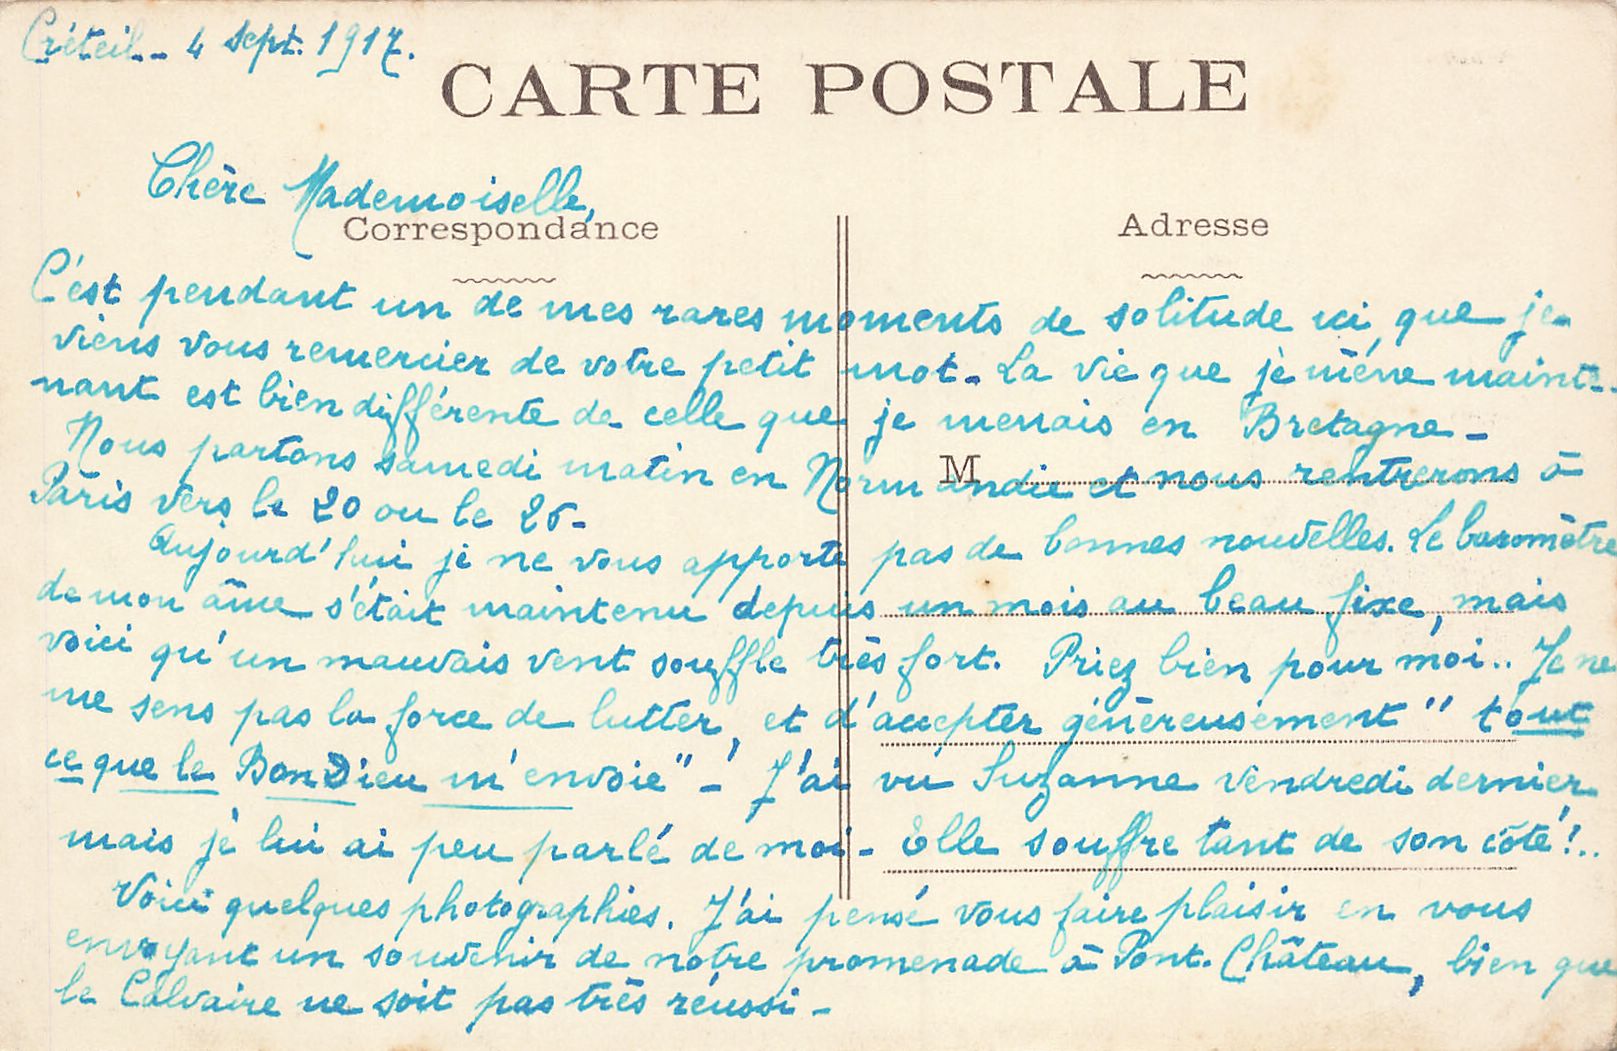 Créteil - 4 Sept. 1917.
CARTE POSTALE
Chère Mademoiselle,
Correspondance
Adresse
C'est pendant un de mes rares moments de solitude ici, que je
viens vous remercier de votre petit mot - La vie que je mène mainte-
nant est bien différente de celle que je menais en Bretagne -
M
Nous partons samedi matin en Normandie et nous rentrerons à
Paris vers le 20 ou le 25 -
Aujourd'hui je ne vous apporte pas de bonnes nouvelles. Le baromètre
de mon âme s'était maintenu depuis un mois au beau fixe, mais
voici qu'un mauvais vent souffle très fort. Priez bien pour moi.. Je ne
me sens pas la force de lutter, et d'accepter généreusement " tout
ce que le Bon Dieu m'envoie" - J'ai vu Suzanne vendredi dernier
mais je lui ai peu parlé de moi - Elle souffre tant de son côté !..
Voici quelques photographies. J'ai pensé vous faire plaisir en vous
envoyant un souvenir de notre promenade à Pont-Château, bien que
le Calvaire ne soit pas très réussi -